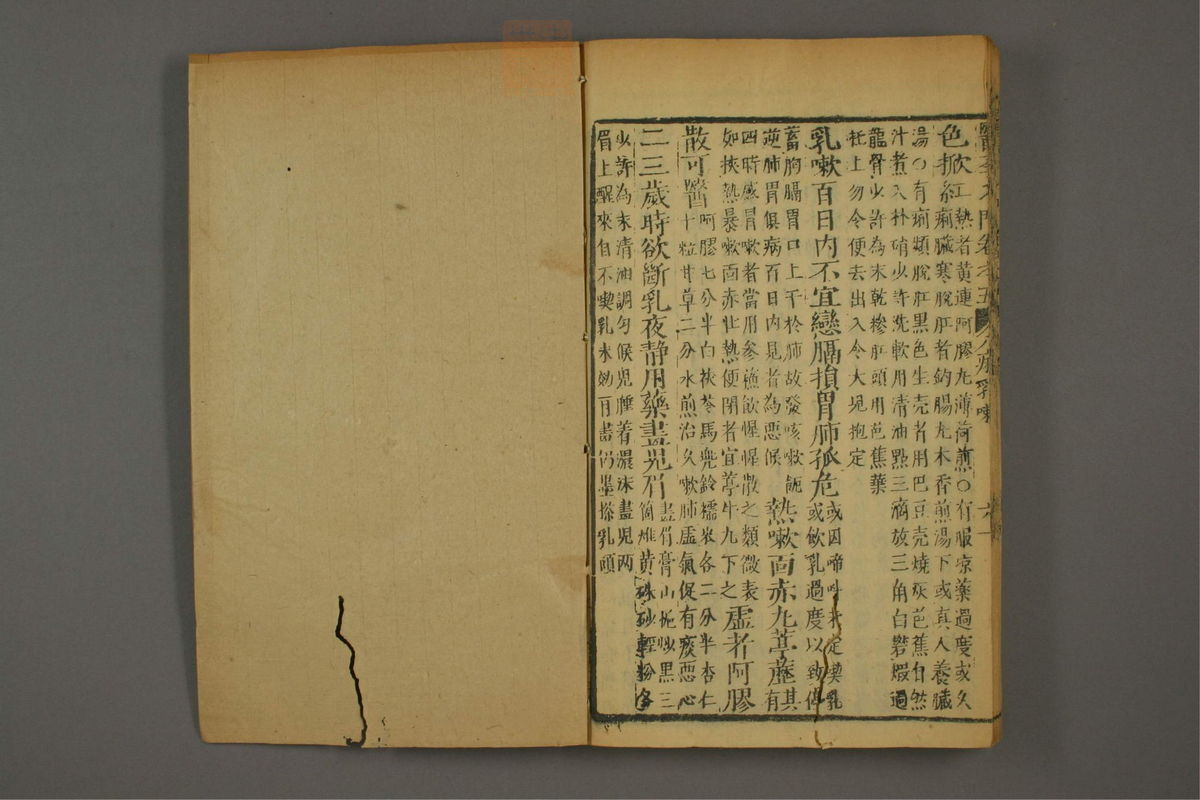 醫學入門卷之五 八 痢 乳嗽 六一
色掀紅熱者黄連阿膠丸薄荷煎○有服凉藥過度或久
紅痢臟寒脫肛者鈎腸丸木香煎湯下或真人養臟
湯○有痢頻脫肛黑色生壳者用巴豆壳燒灰芭蕉自然
汁煮入朴硝少許洗軟用清油點三滴放三角白礬煆過
龍骨少許為末乾摻肛頭用芭蕉葉
托上勿令便去出入令大兒抱定
乳嗽百日内不宜戀膈損胃肺孤危或因啼呌未定喫乳
或飲乳過度以致停
蓄胸膈胃口上干於肺故發咳嗽
逆肺胃俱病百日内見者為惡候熱嗽面赤丸葶藶有
其
四時感冒嗽者當用參蘇飲惺惺散之類微表
如挾熱暴嗽面赤壯熱便閉者宜葶牛丸下之虛者阿膠
散可醫阿膠七分半白茯苓馬兜鈴糯米各二分半杏仁
十粒甘草二分水煎治久嗽肺虛氣促有痰惡心
二三歲時欲斷乳夜静用藥畫兒眉畫眉膏山梔炒黑三
箇雄黄硃砂輕粉各
少許為末清油調勻候兒睡着濃抹畫兒两
眉上醒來自不喫乳未効再畫仍墨搽乳頭